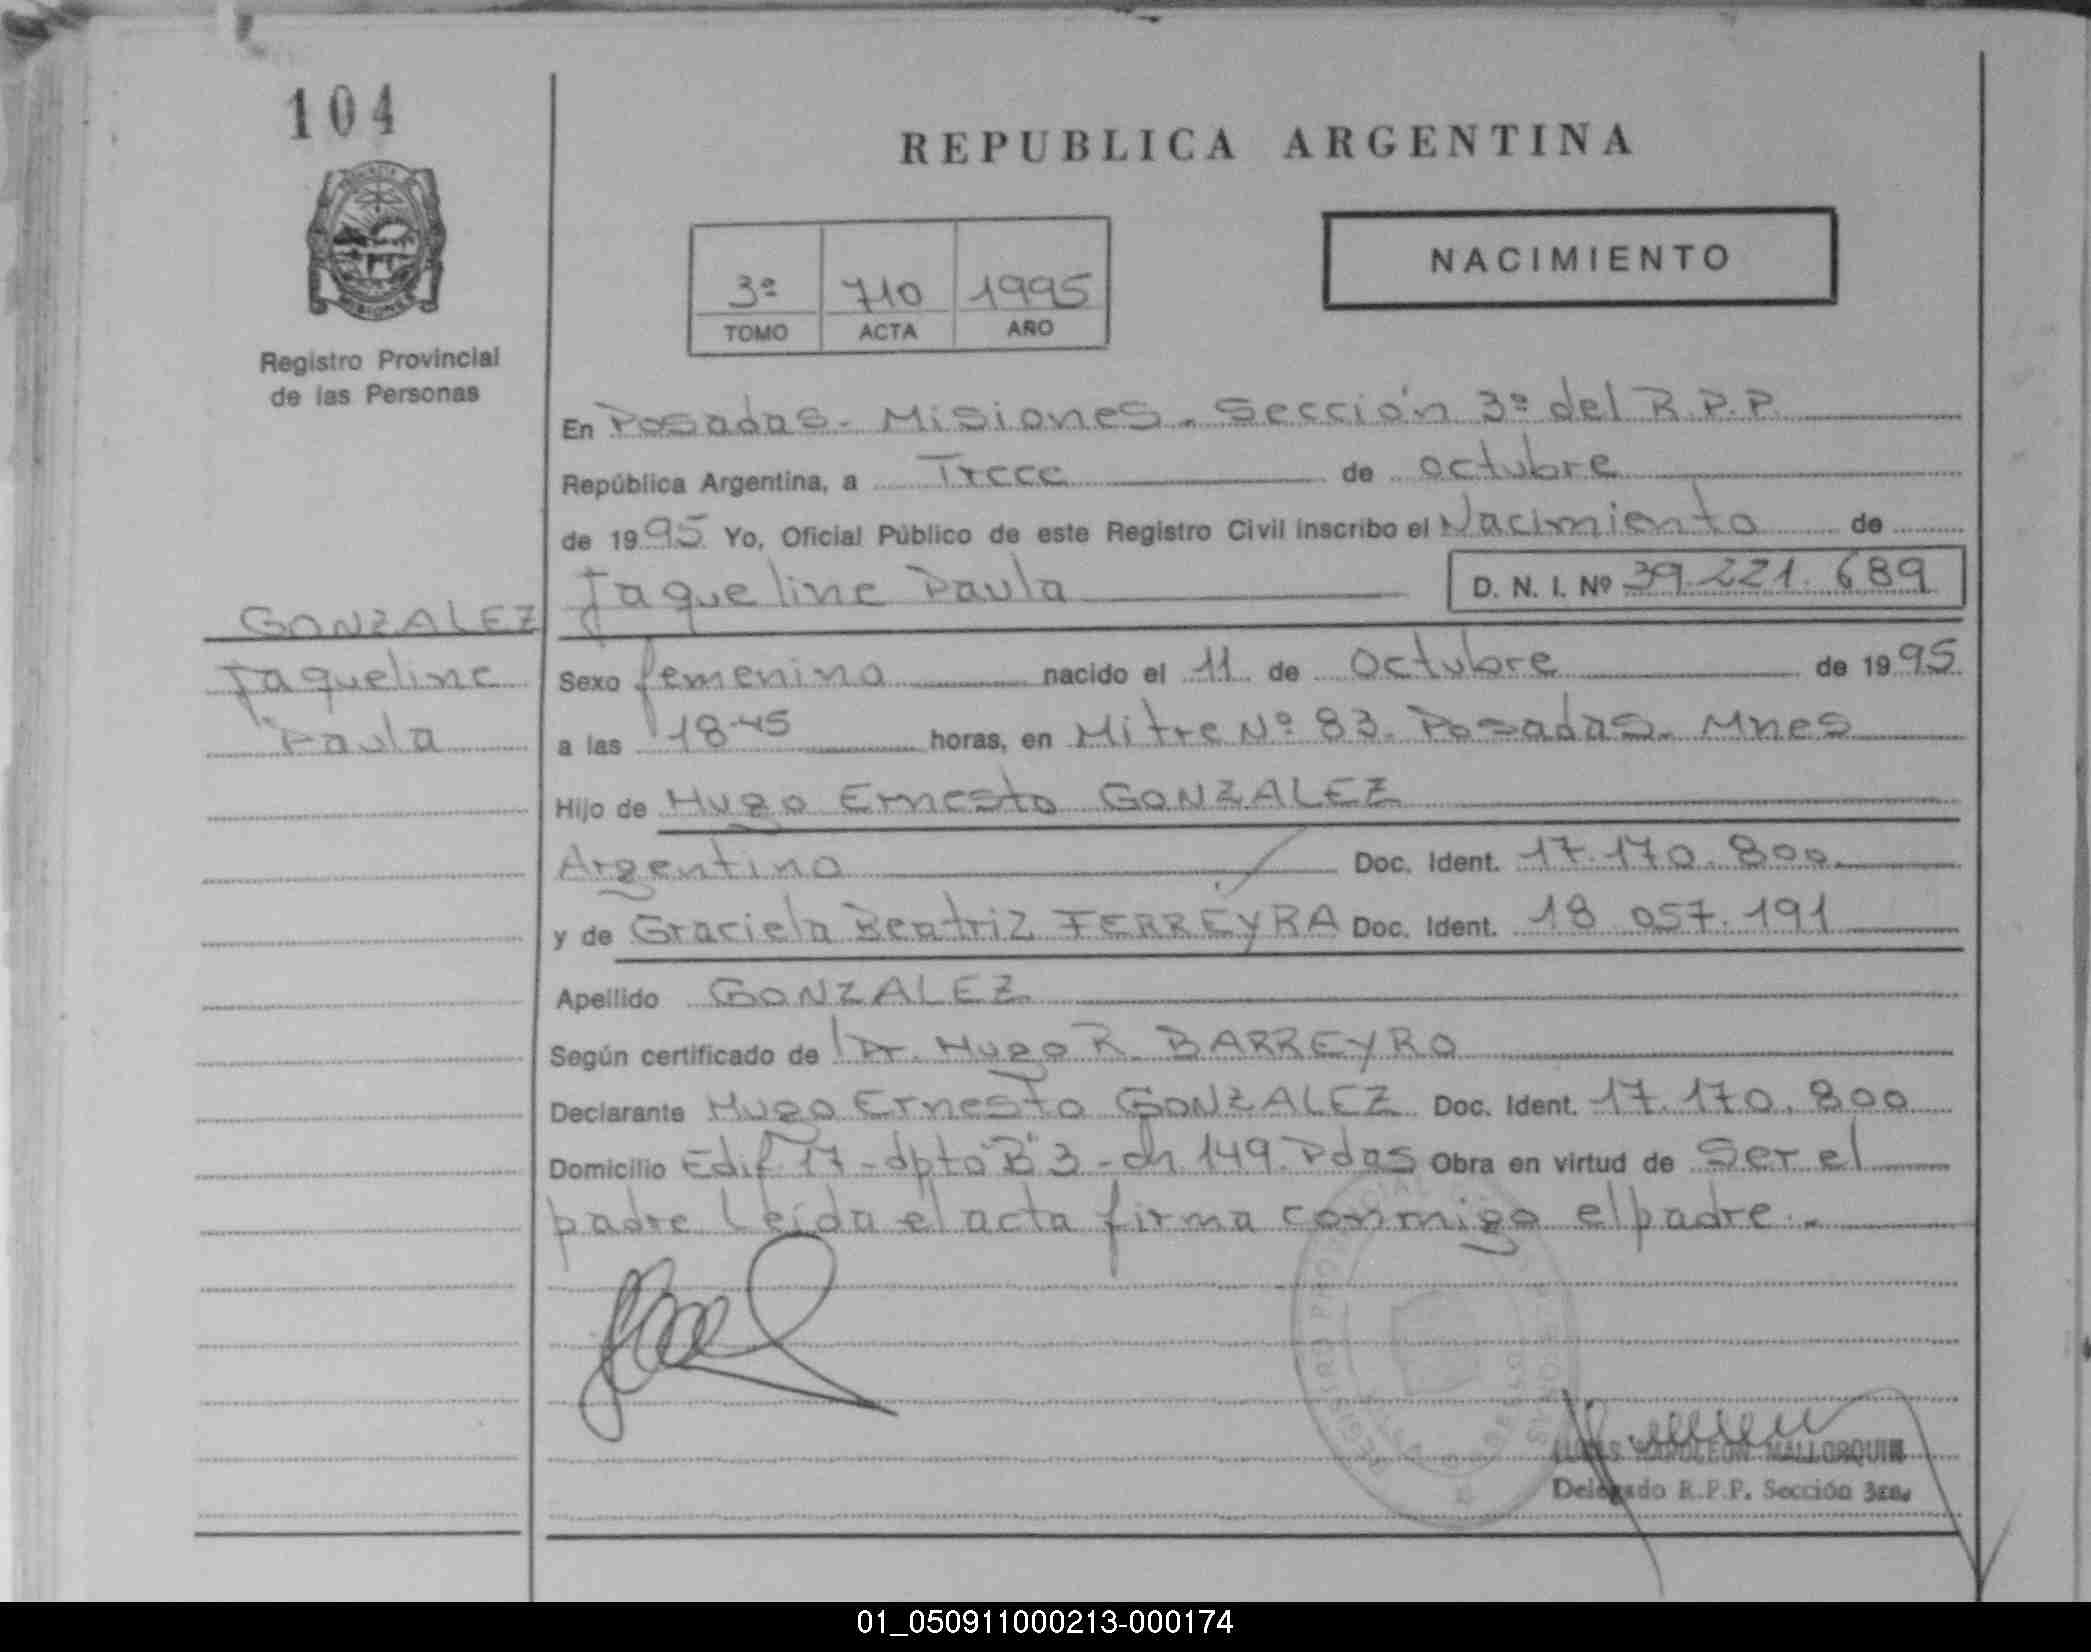 104
REPUBLICA ARGENTINA
NACIMIENTO
3º 710 1995
TOMO ACTA AÑO
Registro Provincial
de las Personas
En Posadas - Misiones. Sección 3º del R.P.P.
República Argentina, a Trece de octubre
de 1995 Yo, Oficial Público de este Registro Civil inscribo el Nacimiento de
Jaqueline Paula D. N. I. Nº 39.221.689
GONZALEZ
Jaqueline
Paula
Sexo femenino nacido el 11 de Octubre de 1995
a las 18-45 horas, en Mitre Nº 83. Posadas. Mnes
Hijo de Hugo Ernesto GONZALEZ
Argentino Doc. Ident. 17.170.800
y de Graciela Beatriz FERREYRA Doc. Ident. 18.057.191
Apellido GONZALEZ
Según certificado de Dr. Hugo R. BARREYRO
Declarante Hugo Ernesto GONZALEZ Doc. Ident. 17.170.800
Domicilio Edif 17 - dpto "B" 3 - ch 149. Pdas Obra en virtud de Ser el
padre Leída el acta firma conmigo el padre.-
NAPOLEON MALLORQUIN
Delegado R.P.P. Sección 3ra.
01_050911000213-000174